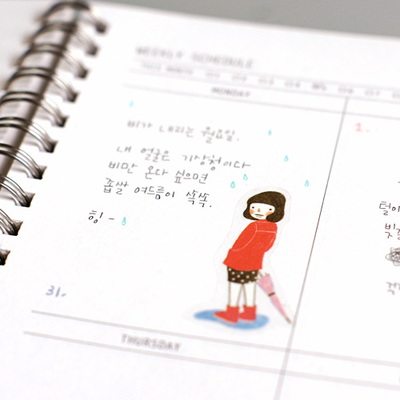 WEEKLY SCHEDULE
THIS MONTH
MONDAY
1.
비가 내리는 월요일.
내 얼굴은 기상청이다
비만 온다 싶으면
좁쌀 여드름이 쏙쏙.
힝 -
31.
THURSDAY